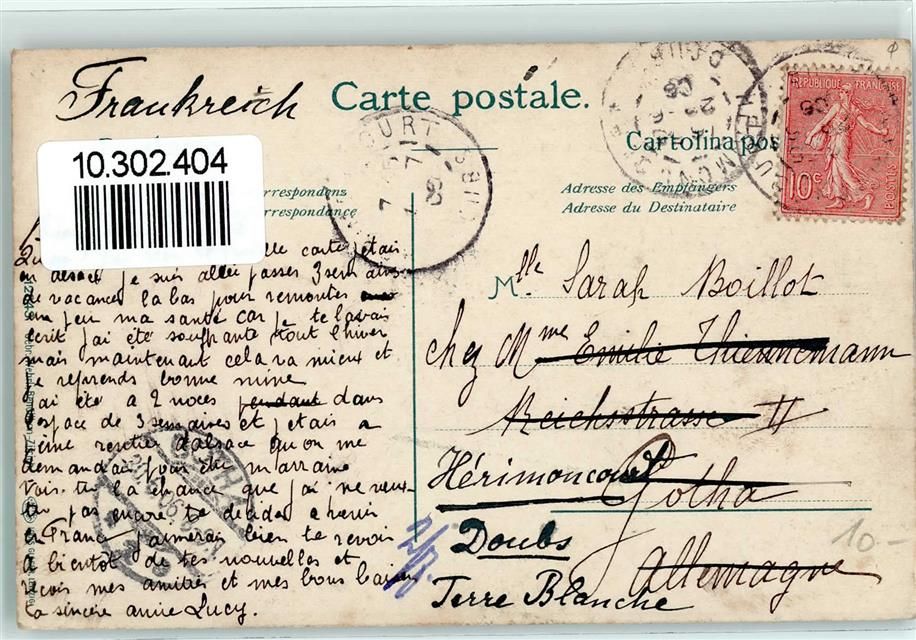 Frankreich
Carte postale.
10.302.404
Cartolina pos
RÉPUBLIQUE FRANÇAISE
10c
POSTES
rrespondenz
rrespondance
Adresse des Empfängers
Adresse du Destinataire
lle carte j'etais
en alsace je suis allée passer 3 semaines
de vacances la bas pour remonter
un peu ma santé car je te l'avais
ecrit j'ai été souffrante tout l'hiver
mais maintenant cela va mieux et
je reprends bonne mine
J'ai été a 2 noces pendant dans
l'espace de 3 semaines et j'etais a
peine rentrée d'alsace qu'on me
demandait pour être marraine
Vois-tu la chance que j'ai ne veux-
tu pas encore te decider a venir
en France j'aimerais bien te revoir
a bientôt de tes nouvelles et
reçois mes amitiés et mes bons baisers
ta sincère amie Lucy.
Mlle Sarah Boillot
chez Mme Emilie Thiennemann
Reichsstrasse II
Gotha
Allemagne
Hérimoncourt
Doubs
Terre Blanche
10-